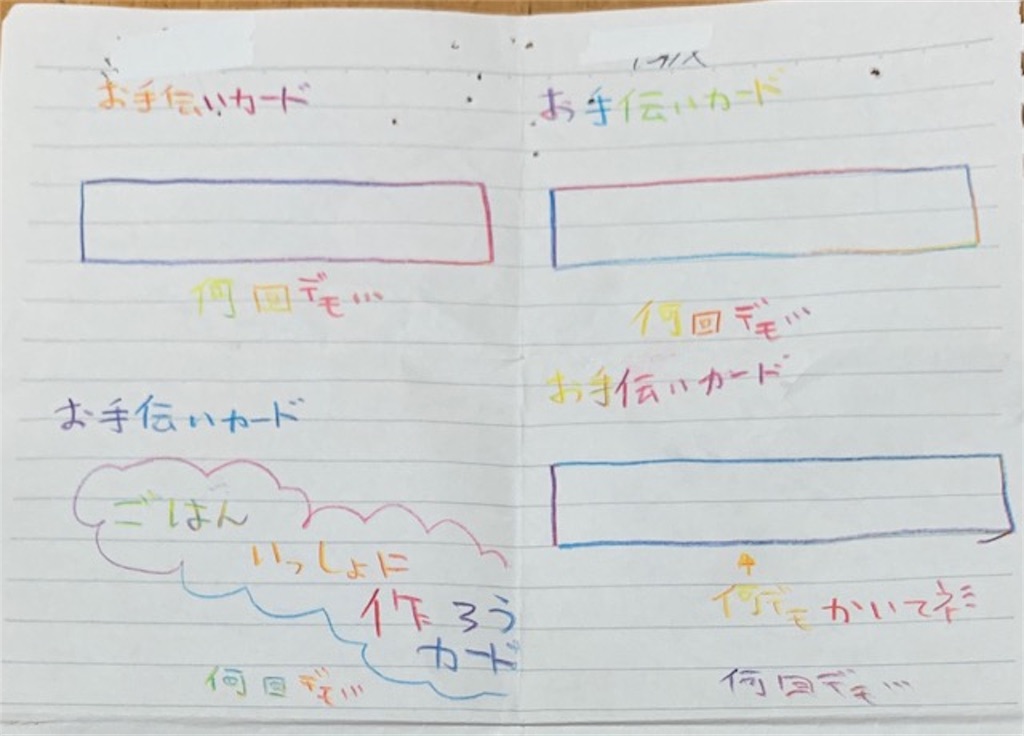 お手伝いカード
何回デモ…
お手伝いカード
何回デモ…
お手伝いカード
ごはん
いっしょに
作ろう
カード
何回デモ…
お手伝いカード
何デモかいてネ
何回デモ…